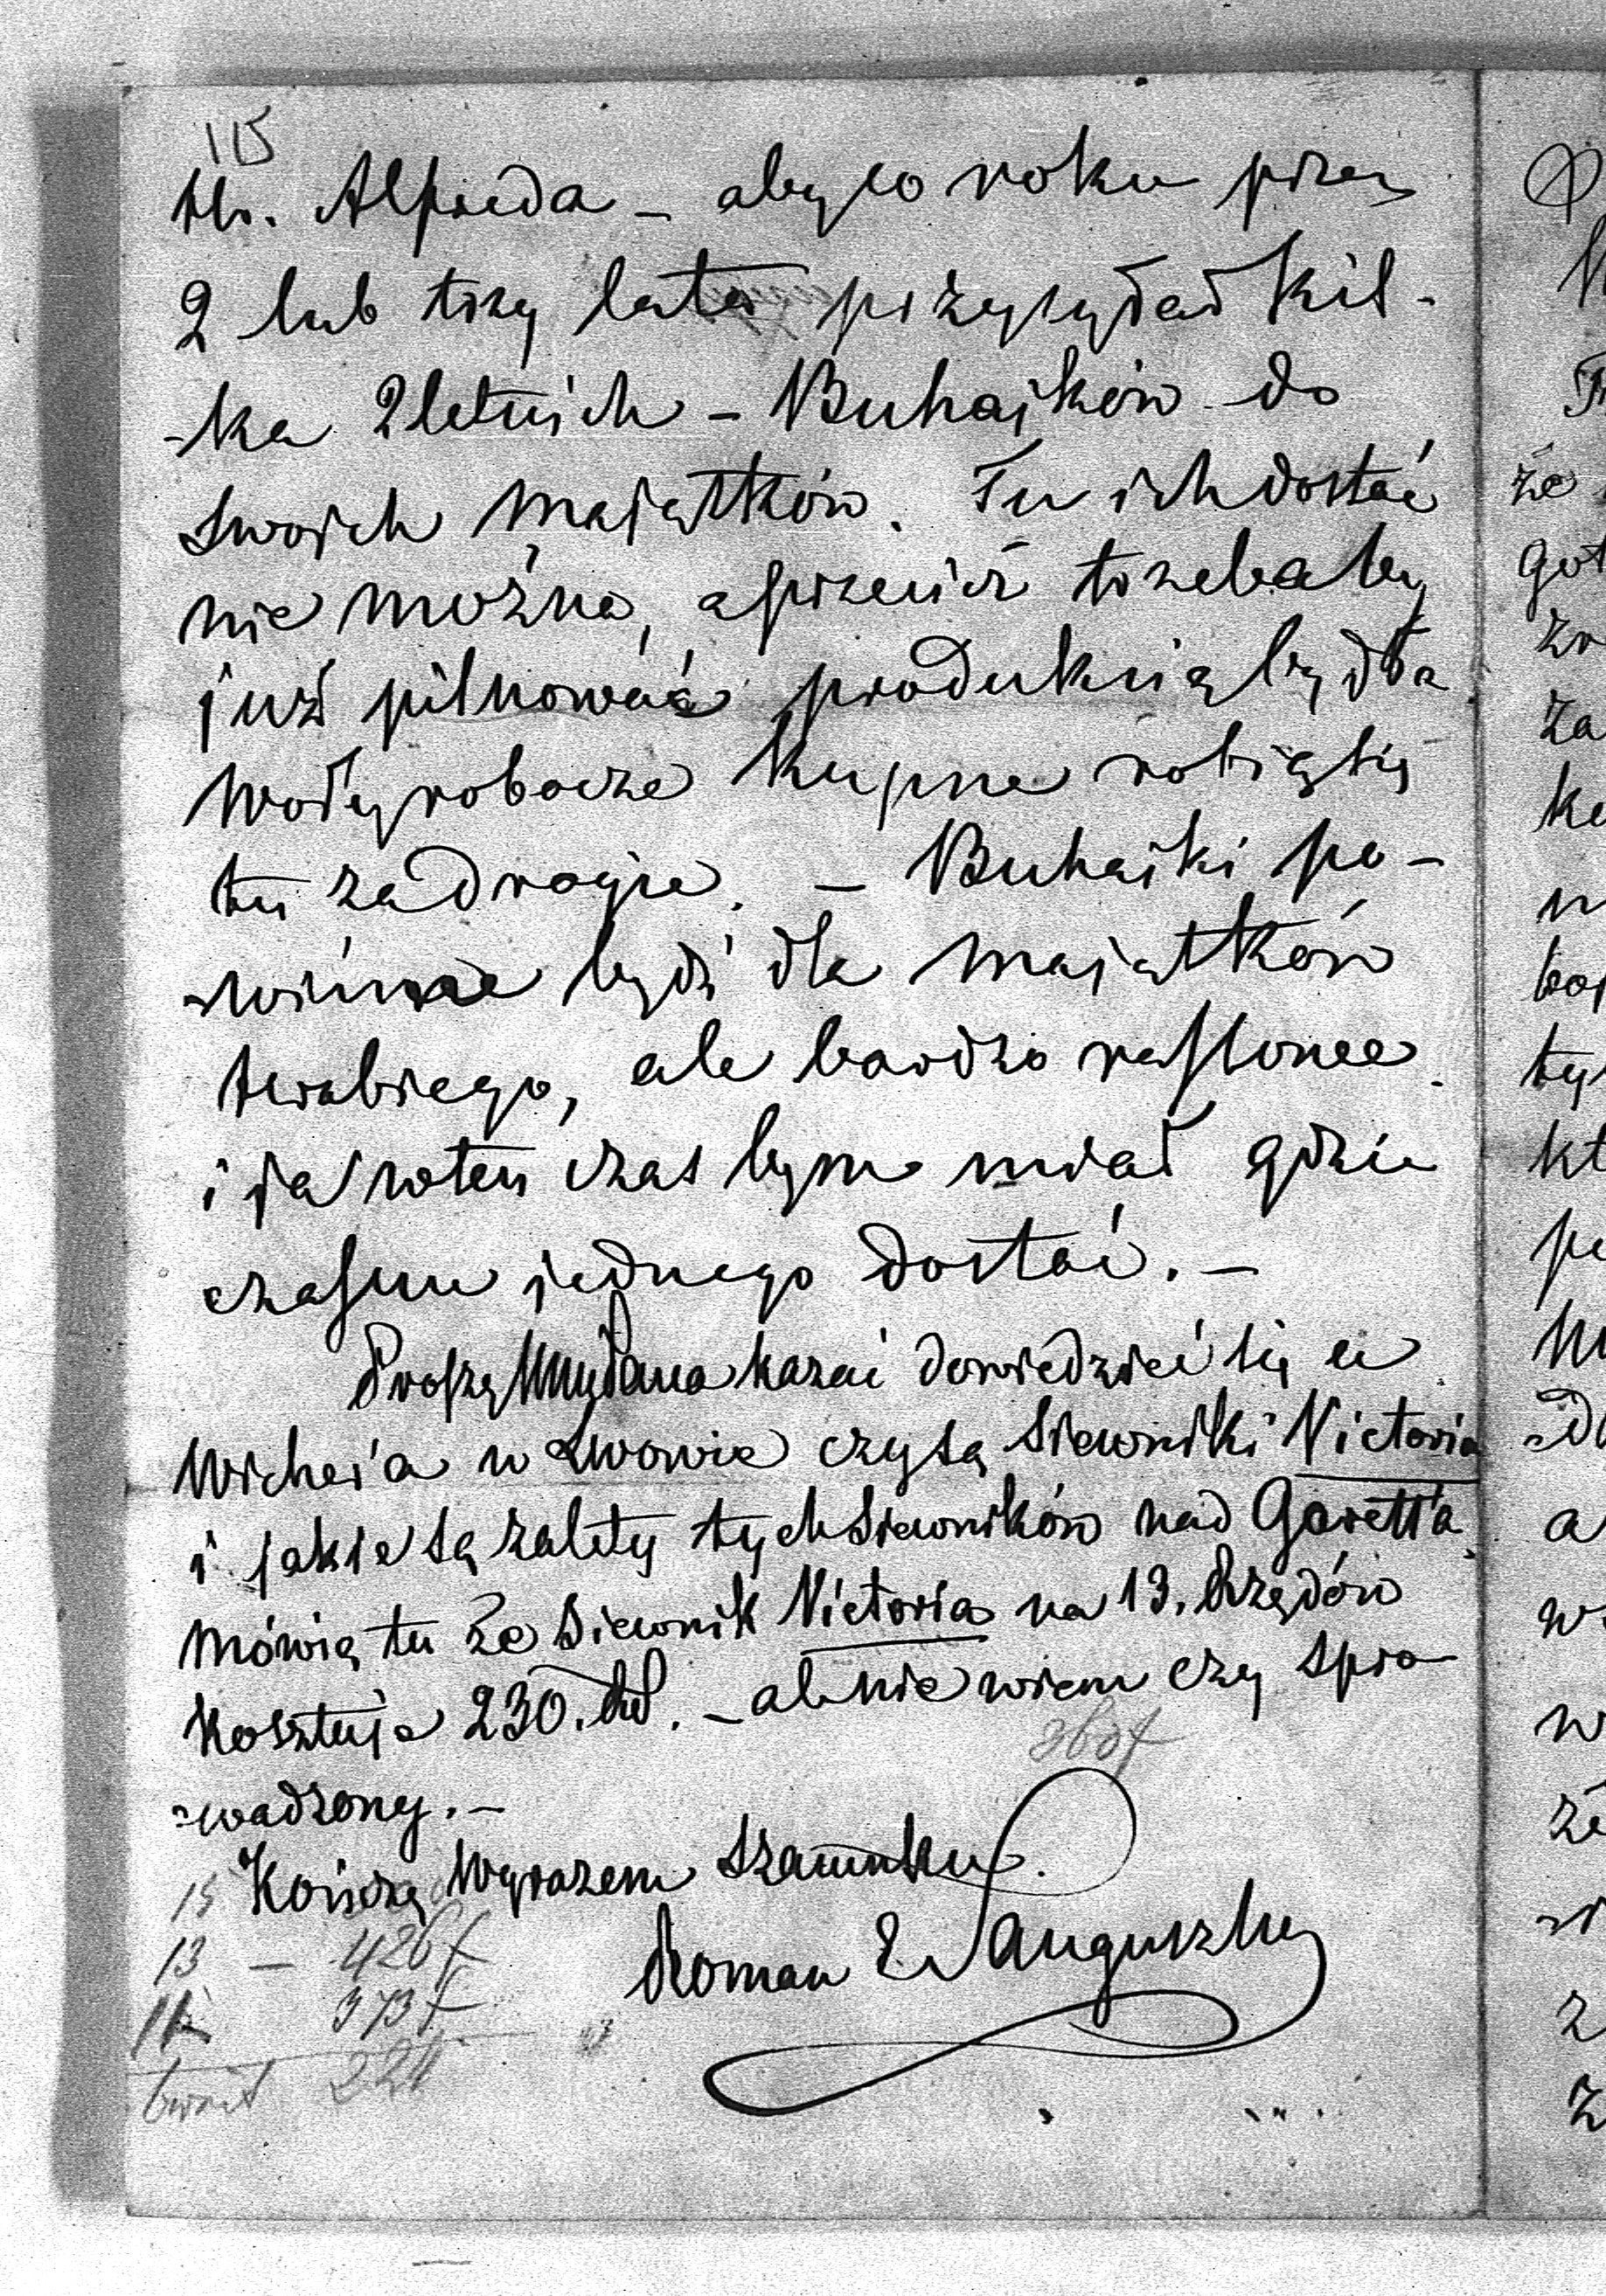 115
Hr. Alfreda – aby co roku przez
2 lub trzy lata przysyłał kil-
-ka 2letnich – Buhajków do
swoich majątków. Tu ich dostać
nie można, a przecież trzebaby
już pilnować produkcią bydła
Woły robocze kupne robią się
tu za drogie. – Buhajki po-
-winne bydź dla majątków
hrabiego, ale bardzo rassowe
i ja w ten czas bym miał gdzie
czasem jednego dostać. –
Proszę Pana kazać dowiedzieć się u
Wichera w Lwowie czy są Siewniki Victoria
i jakie są zalety tych Siewników nad Garetta
mówią tu że Siewnik Victoria na 13. Rzędów
Kosztuje 230. – ale nie wiem czy spro-
-wadzony. –
Kończę Wyrazem Szacunku.
15
13 – 426 f
373 f
Roman Sanguszko